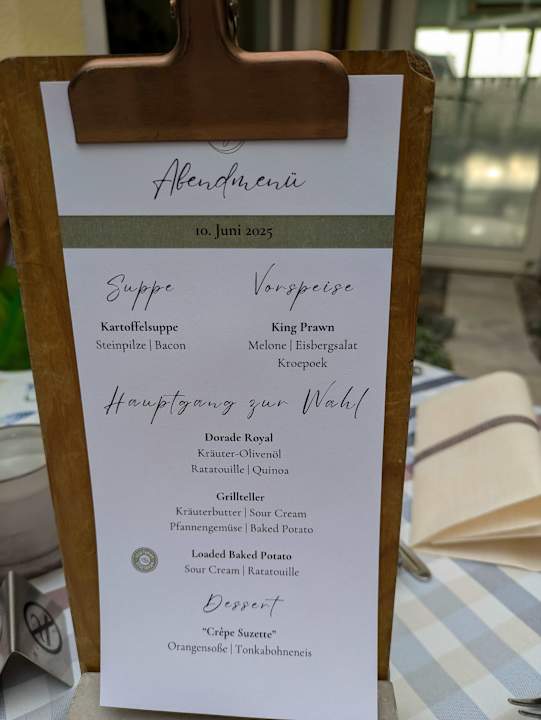 Abendmenü
10. Juni 2025
Suppe
Kartoffelsuppe
Steinpilze | Bacon
Vorspeise
King Prawn
Melone | Eisbergsalat
Kroepoek
Hauptgang zur Wahl
Dorade Royal
Kräuter-Olivenöl
Ratatouille | Quinoa
Grillteller
Kräuterbutter | Sour Cream
Pfannengemüse | Baked Potato
Loaded Baked Potato
Sour Cream | Ratatouille
Dessert
"Crêpe Suzette"
Orangensoße | Tonkabohneneis